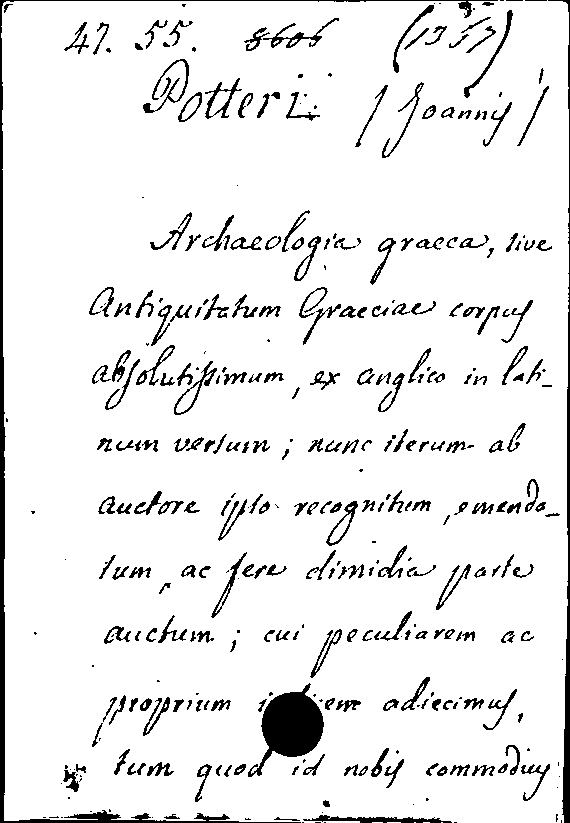 47. 55. 8606 (1357)
Potteri. / Joannis /
Archaeologia graeca, sive
Antiquitatum Graeciae corpus
absolutissimum, ex anglico in lati-
num versum; nunc iterum ab
auctore ipso recognitum, emenda-
tum, ac fere dimidia parte
auctum; cui peculiarem ac
proprium adiecimus,
tum quod id nobis commodius